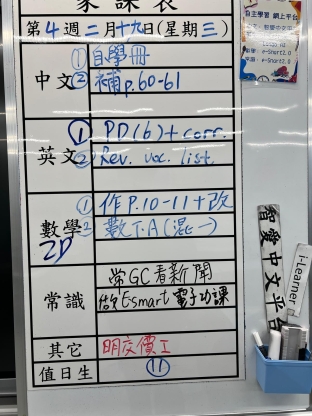 家課表
第4週 二月十九日(星期三)
中文 ①自學冊
②補p.60-61
英文 ① PD(6)+ corr.
② Rev. voc. list
數學 ① 作P.10-11+改
2D ② 數T.A(混一)
常識 常GC看新聞
Esmart 電子功課
其它 明交價工
值日生 ⑪
自主學習 網上平台
智愛中文平台
i-Learner